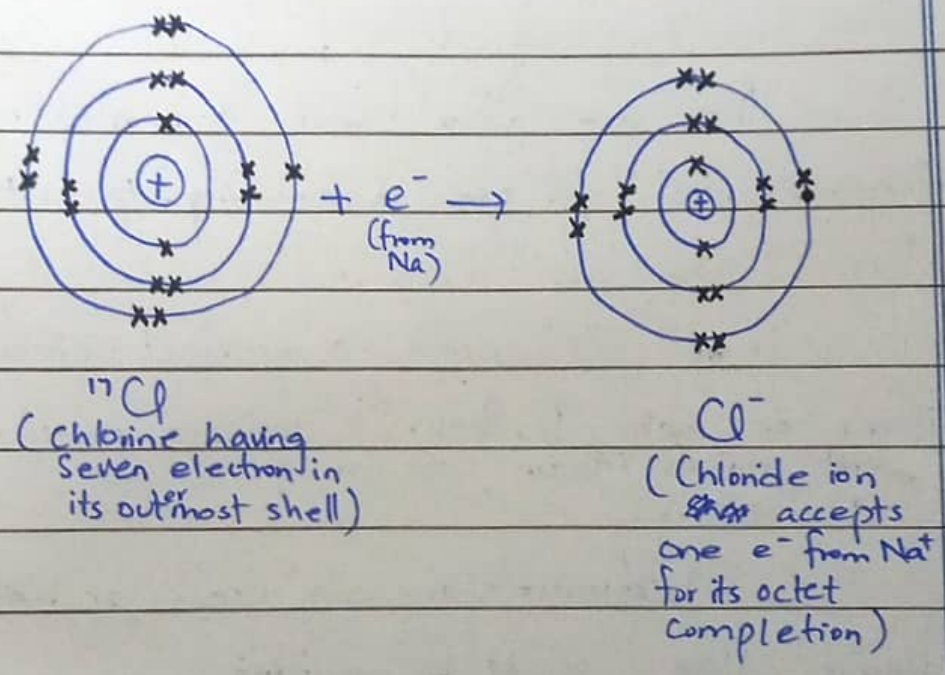 +
+ e⁻ →
(from
Na)
+
¹⁷Cl
(Chlorine having
Seven electron in
its outermost shell)
Cl⁻
(Chloride ion
accepts
one e⁻ from Na⁺
for its octet
completion)